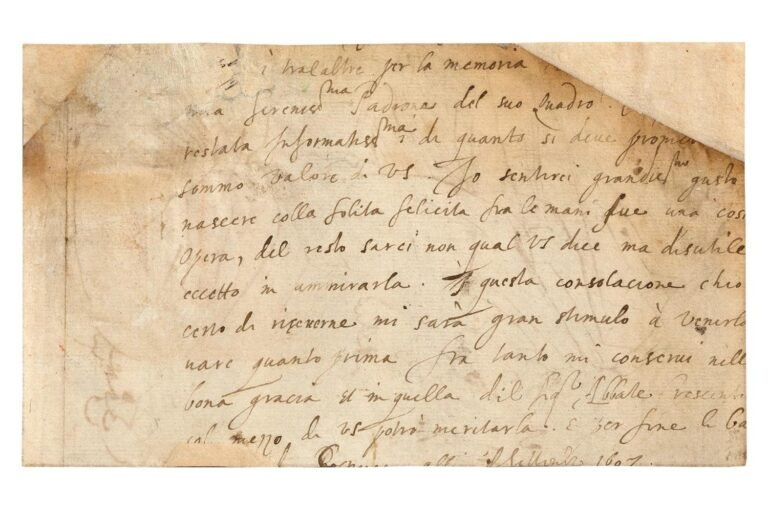 i tralaltre per la memoria
mia Sereniss ma Padrona del suo Quadro.
restata Informatiss ma di quanto si deve
sommo valore di VS. Io sentirei grandis mo gusto
nascere colla solita felicita fra le mani sue una cosi
Opera, del resto sarei non qual VS dice ma disutile
eccetto in ammirarla. questa consolacione chio
certo di riceverne mi sarà gran stimulo à venirlo
vare quanto prima fra tanto mi conservi nell
bona gracia et in quella dil Sig r Abbate
col mezo di VS potrò meritarla. E per fine le ba